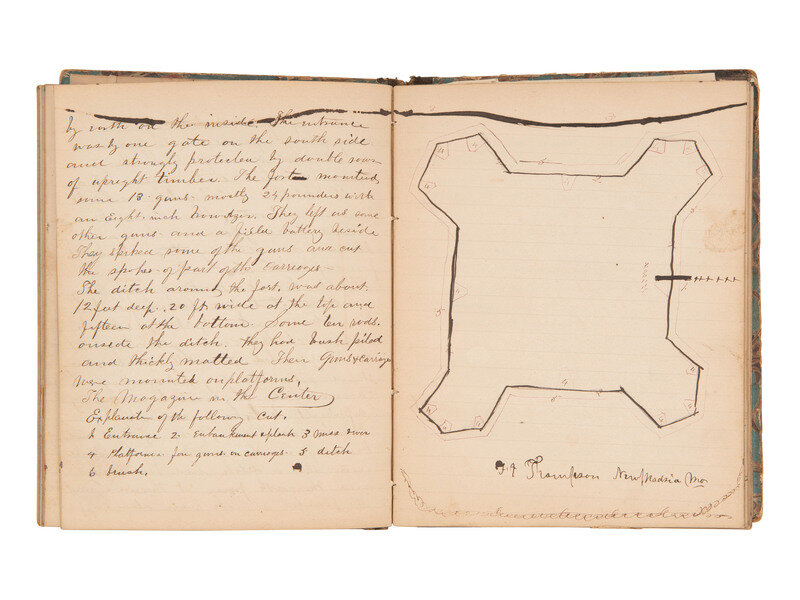 by earth on the inside The entrance
was by one gate on the south side
and strongly protected by double rows
of upright timber. The fort mounted
some 13 guns mostly 24 pounders with
an Eight inch howitzer. They left us some
other guns and a field battery beside
They spiked some of the guns and cut
the spokes of part of the carriages -
The ditch around the fort was about
12 feet deep. 20 ft wide at the top and
fifteen at the bottom. Some ten rods
outside the ditch they had bush piled
and thickly matted Their Guns & carriages
were mounted on platforms,
The Magazine in the Center
Explanation of the following cut.
1 Entrance 2 embankment & plank 3 Miss river
4 Platforms for guns on carriages 5 ditch
6 brush.
Ft Thompson New Madrid Mo